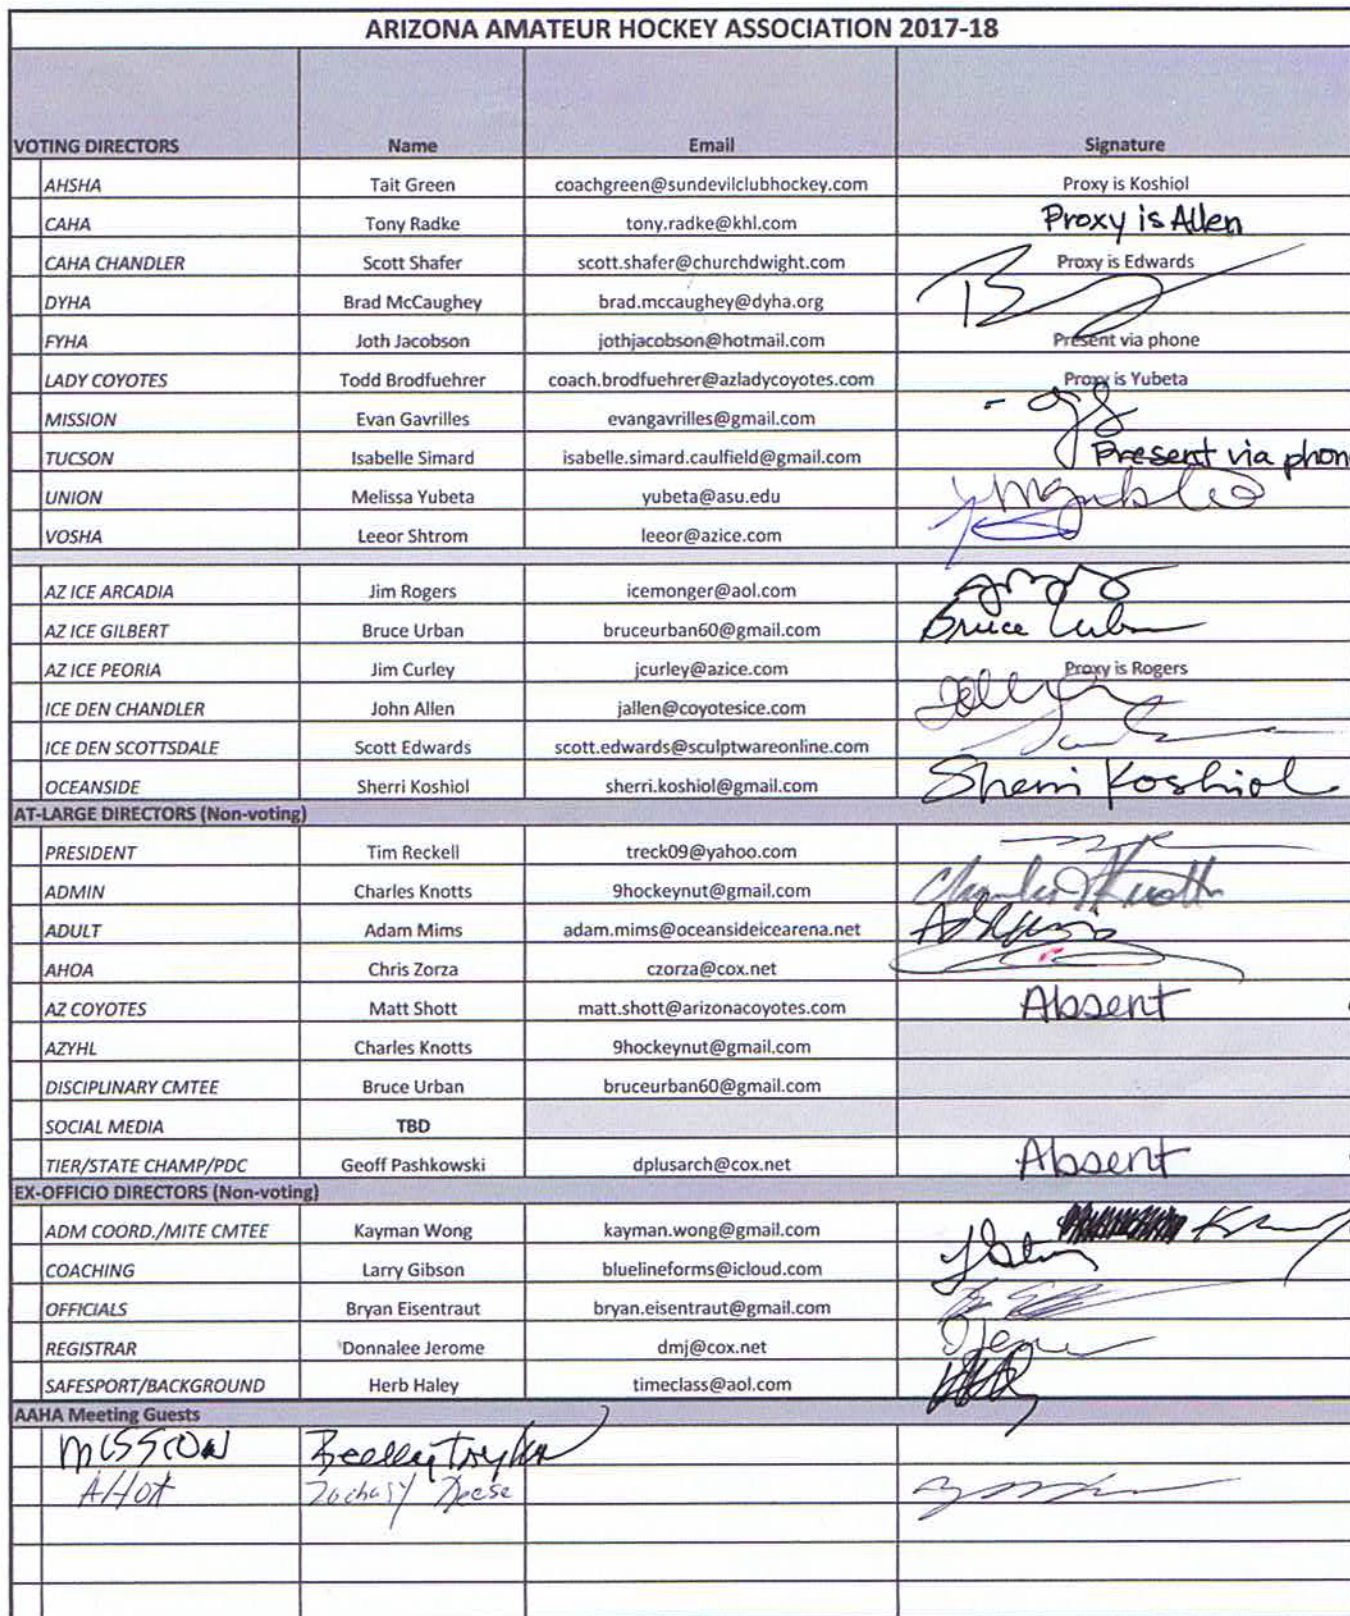 ARIZONA AMATEUR HOCKEY ASSOCIATION 2017-18
VOTING DIRECTORS Name Email Signature
AHSHA Tait Green coachgreen@sundevilclubhockey.com Proxy is Koshiol
CAHA Tony Radke tony.radke@khl.com Proxy is Allen
CAHA CHANDLER Scott Shafer scott.shafer@churchdwight.com Proxy is Edwards
DYHA Brad McCaughey brad.mccaughey@dyha.org
FYHA Joth Jacobson jothjacobson@hotmail.com Present via phone
LADY COYOTES Todd Brodfuehrer coach.brodfuehrer@azladycoyotes.com Proxy is Yubeta
MISSION Evan Gavrilles evangavrilles@gmail.com
TUCSON Isabelle Simard isabelle.simard.caulfield@gmail.com Present via phon
UNION Melissa Yubeta yubeta@asu.edu
VOSHA Leeor Shtrom leeor@azice.com
AZ ICE ARCADIA Jim Rogers icemonger@aol.com
AZ ICE GILBERT Bruce Urban bruceurban60@gmail.com Bruce Urban
AZ ICE PEORIA Jim Curley jcurley@azice.com Proxy is Rogers
ICE DEN CHANDLER John Allen jallen@coyotesice.com
ICE DEN SCOTTSDALE Scott Edwards scott.edwards@sculptwareonline.com
OCEANSIDE Sherri Koshiol sherri.koshiol@gmail.com Sherri Koshiol
AT-LARGE DIRECTORS (Non-voting)
PRESIDENT Tim Reckell treck09@yahoo.com
ADMIN Charles Knotts 9hockeynut@gmail.com Charles Knotts
ADULT Adam Mims adam.mims@oceansideicearena.net
AHOA Chris Zorza czorza@cox.net
AZ COYOTES Matt Shott matt.shott@arizonacoyotes.com Absent
AZYHL Charles Knotts 9hockeynut@gmail.com
DISCIPLINARY CMTEE Bruce Urban bruceurban60@gmail.com
SOCIAL MEDIA TBD
TIER/STATE CHAMP/PDC Geoff Pashkowski dplusarch@cox.net Absent
EX-OFFICIO DIRECTORS (Non-voting)
ADM COORD./MITE CMTEE Kayman Wong kayman.wong@gmail.com
COACHING Larry Gibson bluelineforms@icloud.com
OFFICIALS Bryan Eisentraut bryan.eisentraut@gmail.com
REGISTRAR Donnalee Jerome dmj@cox.net
SAFESPORT/BACKGROUND Herb Haley timeclass@aol.com
AAHA Meeting Guests
MISSION
AHOA Zachary